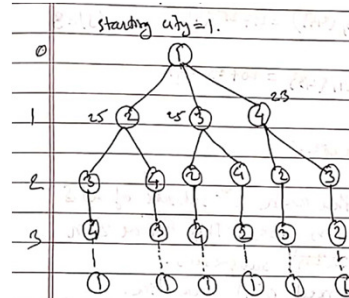 starting city = 1.
0 1
1 25 2 25 3 23 4
2 3 4 2 4 2 3
3 4 3 4 2 3 2
1 1 1 1 1 1